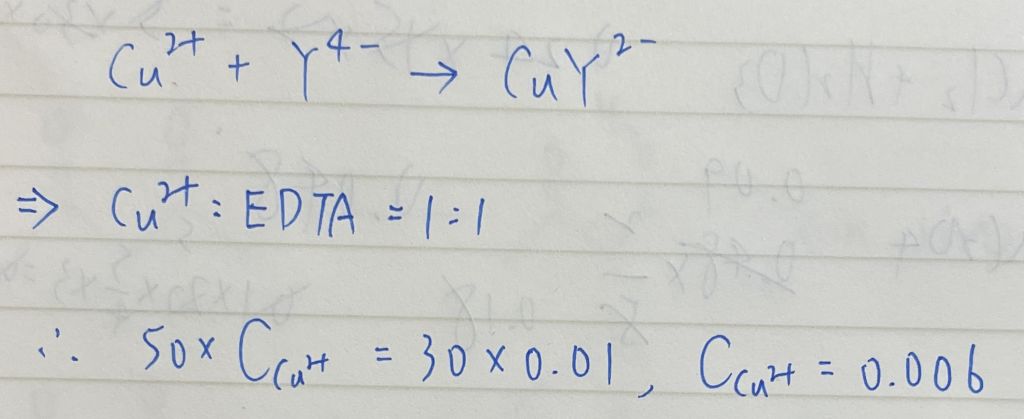 Cu²⁺ + Y⁴⁻ → CuY²⁻
⇒ Cu²⁺ : EDTA = 1 : 1
∴ 50 × C_Cu²⁺ = 30 × 0.01, C_Cu²⁺ = 0.006